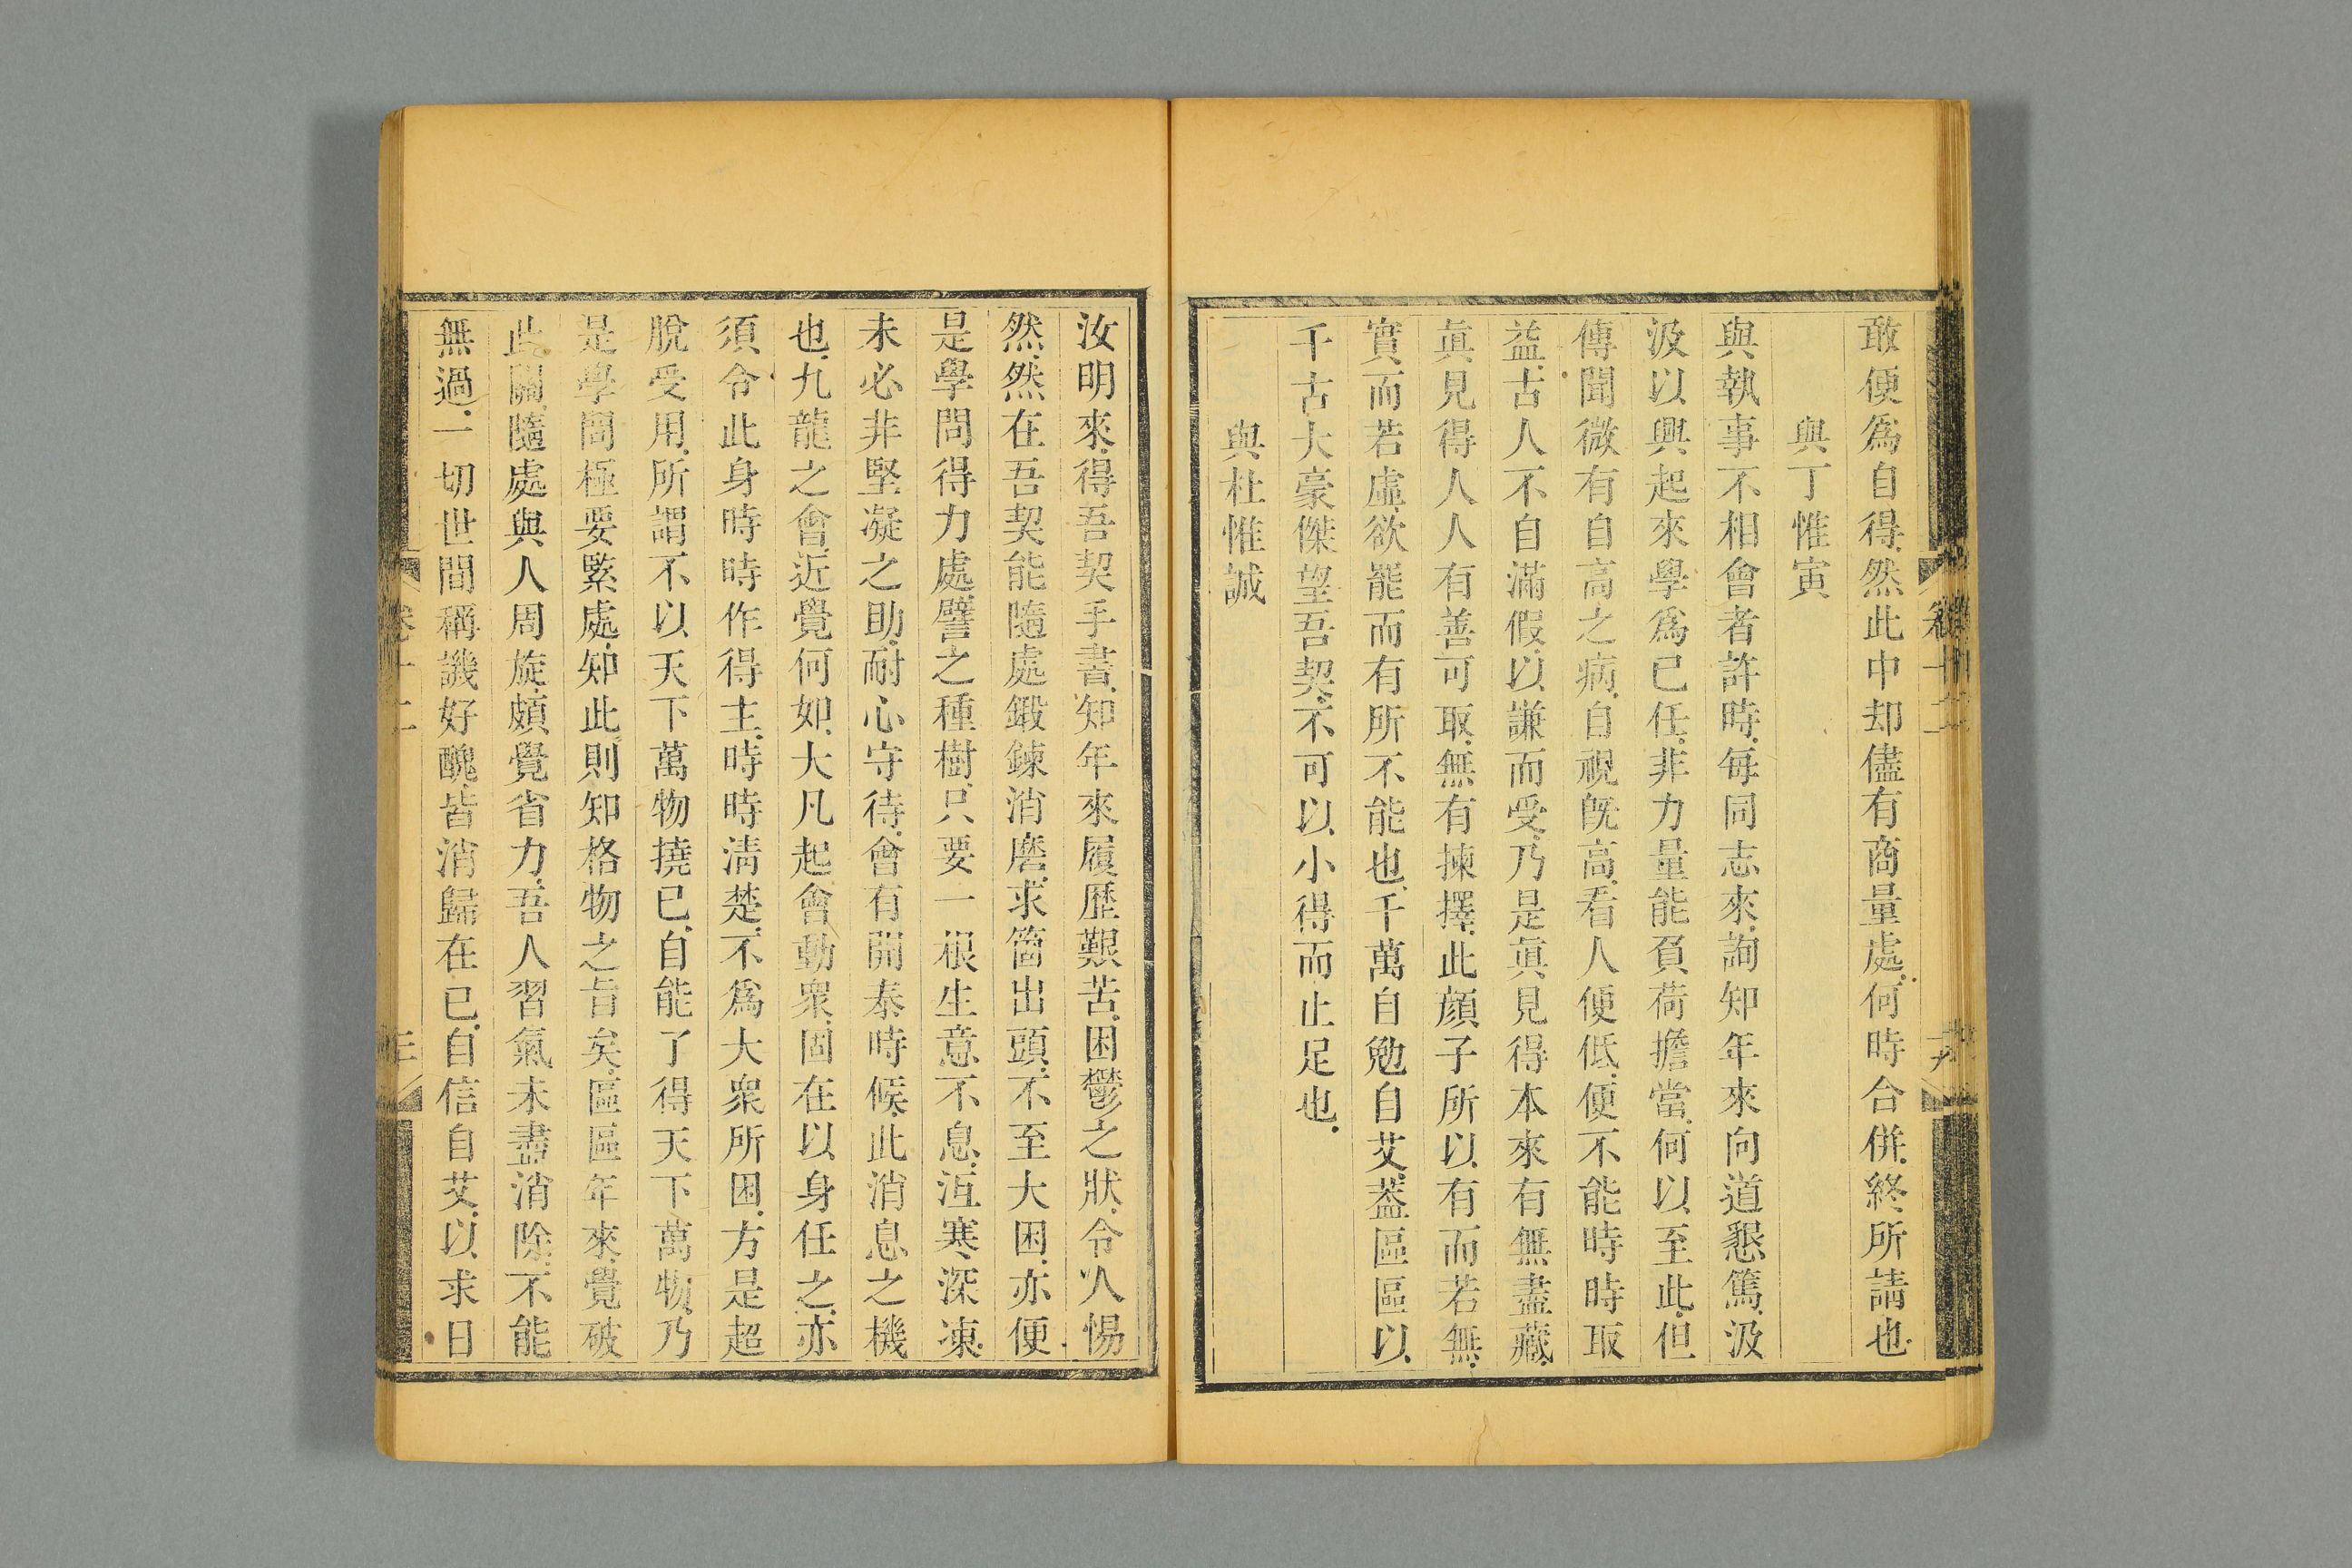 敢便爲自得然此中却儘有商量處何時合併終所請也
與丁惟寅
與執事不相會者許時每同志來詢知年來向道懇篤汲
汲以興起來學爲已任非力量能負荷擔當何以至此但
傳聞微有自高之病自視旣高看人便低便不能時時取
益古人不自滿假以謙而受乃是眞見得本來有無盡藏
眞見得人人有善可取無有揀擇此顔子所以有而若無
實而若虛欲罷而有所不能也千萬自勉自艾葢區區以
千古大豪傑望吾契不可以小得而止足也
與杜惟誠
汝明來得吾契手書知年來履歷艱苦困鬱之狀令人惕
然然在吾契能隨處鍛鍊消磨求箇出頭不至大困亦便
是學問得力處譬之種樹只要一根生意不息沍寒深凍
未必非堅凝之助耐心守待會有開泰時候此消息之機
也九龍之會近覺何如大凡起會動衆固在以身任之亦
須令此身時時作得主時時淸楚不爲大衆所困方是超
脫受用所謂不以天下萬物撓已自能了得天下萬物乃
是學問極要緊處知此則知格物之旨矣區區年來覺破
此關隨處與人周旋頗覺省力吾人習氣未盡消除不能
無過一切世間稱譏好醜皆消歸在已自信自艾以求日
卷十二